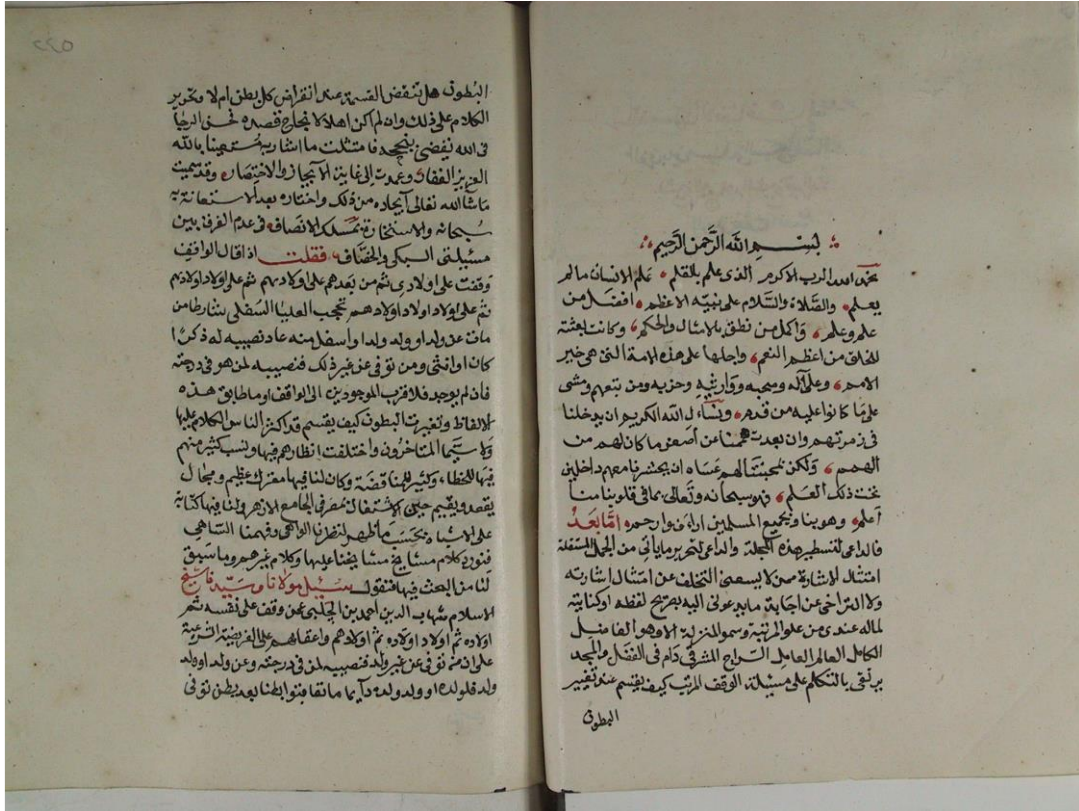 بسم الله الرحمن الرحيم
نحمد الله الرب الاكرم الذى علم بالقلم علم الانسان ما لم
يعلم والصلاة والسلام على نبيه الاعظم افضل من
علم وعلم واكمل من نطق بالامثال والحكم وكانت بعثته
للخلق من اعظم النعم واجلها على هذه الامة التى هى خير
الامم وعلى آله وصحبه ووارثيه وحزبه ومن تبعهم ومشى
على ما كانوا عليه من قدم ونسأل الله الكريم ان يدخلنا
فى زمرتهم وان بعدت هممنا عن أضعف ما كان لهم من
الهمم ولكن لمحبتنا لهم عساه ان يحشرنا معهم داخلين
تحت ذلك العلم فهو سبحانه وتعالى بما فى قلوبنا منا
أعلم وهو بنا وبجميع المسلمين اراف وارحم امّا بعد
فالداعى لتسطير هذه العجلة والداعى لتحرير ما ياتى من الجمل المستقلة
امتثال الاشارة ممن لا يسعنى التخلف عن امتثال اشارته
ولا التراخى عن اجابة ما يدعونى اليه بصريح لفظه او كنايته
لماله عندى من علو المرتبة وسمو المنزلة الا وهو الفاضل
الكامل العالم العامل السراج المشرقى دام فى الفضل والمجد
يرتقى بالتكلم على مسئلة الوقف المرتب كيف يقسم عند تغيير
البطون
٥٤٢
البطون هل تنقض القسمة عند انقراض كل بطن ام لا وتحرير
الكلام على ذلك وان لم اكن اهلا لانجاح قصده فحسن الرجا
فى الله يقضى بنجحه فامتثلت ما اشار به مستعينا بالله
العزيز الغفار وعمدت الى غاية الايجاز والاختصار وقد سميت
ما شآ الله تعالى ايجاده من ذلك واختاره بعد الاستعانة به
سبحانه والاستخارة تمسلك الانصاف فى عدم الفرق بين
مسئلتى السبكى والخصاف فقلت اذا قال الواقف
وقفت على اولادى ثم من بعدهم على اولادهم ثم على اولاد اولادهم
ثم على اولاد اولاد اولادهم تحجب العليا السفلى شارطا من
مات عن ولد او ولد ولد او اسفل منه عاد نصيبه له ذكرا
كان او انثى ومن توفى عن غير ذلك فنصيبه لمن هو فى درجته
فان لم يوجد فلاقرب الموجودين الى الواقف او ما طابق هذه
الالفاظ وتغيرت البطون كيف يقسم قد اكثر الناس الكلام عليها
ولا سيما المتاخرون واختلفت انظارهم فيها ونسب كثير منهم
فيها للخطاء وكثير للمناقضة وكان لنا فيها معترك عظيم ومجال
يقعد ويقيم حين الاشتغال بمصر فى الجامع الازهر ولنا فيها كتابة
على الاشباه بحسب ما ظهر لنظرنا الواهى وفهمنا الساهى
فنورد كلام مشايخ مشايخنا عليها وكلام غيرهم وما سبق
لنا من البحث فيها فنقول سئل مولانا وسيدنا شيخ
الاسلام شهاب الدين احمد بن الچلبى عن وقف على نفسه ثم
اولاده ثم اولاد اولاده ثم اولادهم واعقابهم على الفريضة الشرعية
على ان من توفى عن غير ولد فنصيبه لمن فى درجته وعن ولد او ولد
ولد فلولده او ولد ولده دآيما ما تعاقبوا بطنا بعد بطن توفى